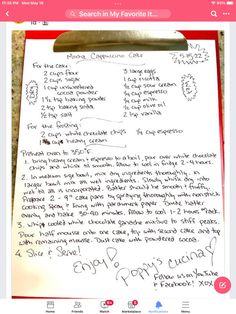 11:35 PM Mon May 16
91%
Search in My Favorite It...
Mocha Cappuccino Cake
For the cake:
2 cups flour
2 cups sugar
1 cup unsweetened
cocoa powder
1 1/2 tsp baking powder
2 tsp baking soda
1/2 tsp salt
3 large eggs
1 cup ricotta
1/2 cup sour cream
3/4 cup espresso
1/2 cup milk
1/2 cup olive oil
2 tsp vanilla
For the frosting:
2 cups white chocolate chips
1/4 cup espresso
cups heavy cream
Preheat oven to 350°F
1. bring heavy cream + espresso to a boil, pour over white chocolate
chips and whisk til smooth. Allow to cool in fridge 2-4 hours.
2. In medium size bowl, mix dry ingredients thoroughly. In
larger bowl mix all wet ingredients. Slowly whisk dry into
wet til all is incorporated. Batter should be smooth + fluffy.
Prepare 2 - 9" cake pans by spraying thoroughly with non stick
cooking spray + lining with parchment paper. Divide batter
evenly and bake 30-40 minutes. Allow to cool 1-2 hours
3. Whip cooled white chocolate ganache mixture to stiff peaks.
Pour half mousse onto one cake, top with second cake and top
with remaining mousse. Dust cake with powdered cocoa.
4. Slice & Serve!
Enjoy!
Poppy's cucina
Follow us on YouTube
& Facebook! XOX
Home
Groups
Watch
Marketplace
Notifications
Menu